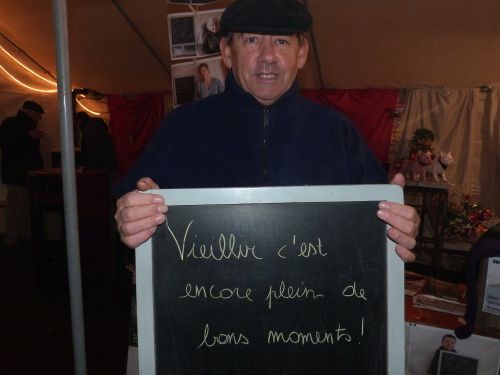 Vieillir c'est
encore plein de
bons moments!